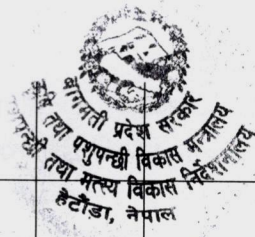 बागमती प्रदेश सरकार
कृषि तथा पशुपन्छी विकास मन्त्रालय
पशुपन्छी तथा मत्स्य विकास निर्देशनालय
हेटौंडा, नेपाल